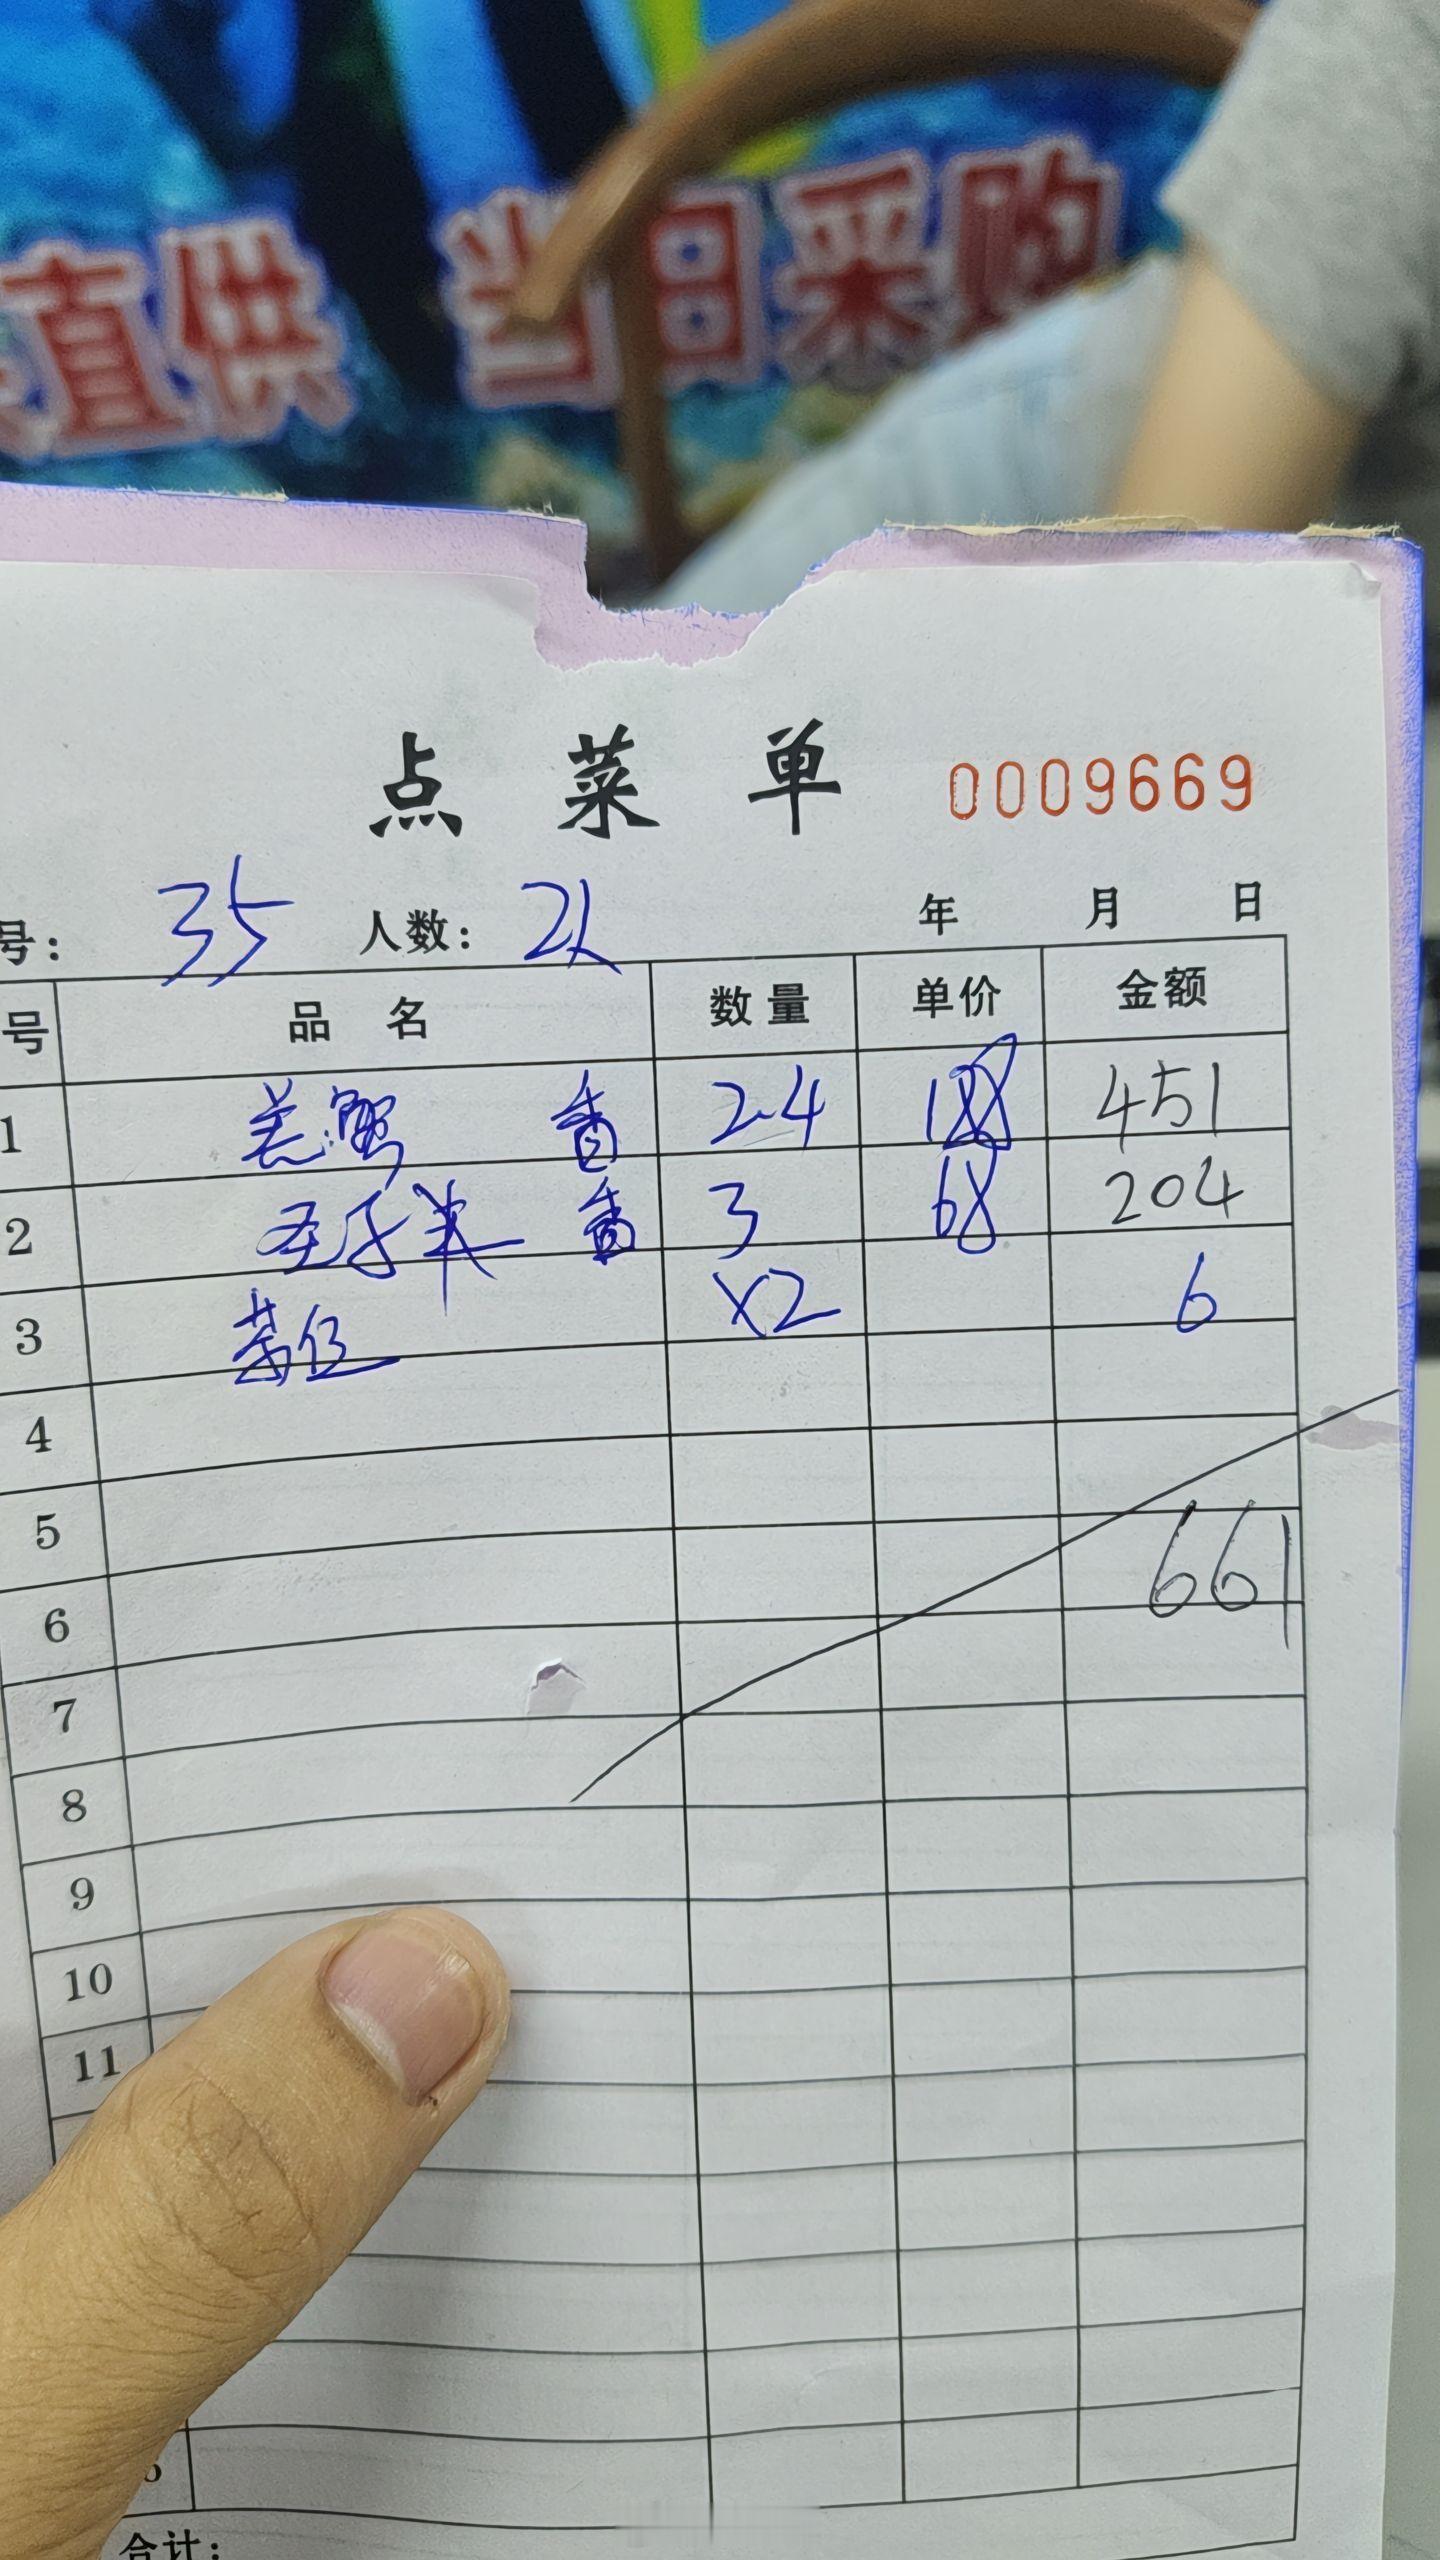 直供 当日采购
点菜单 0009669
号: 35 人数: 2人 年 月 日
号 品名 数量 单价 金额
1 羔蟹 2.4 188 451
2 3 68 204
3 茶位 X2 6
4
5
661
6
7
8
9
10
11
合计: